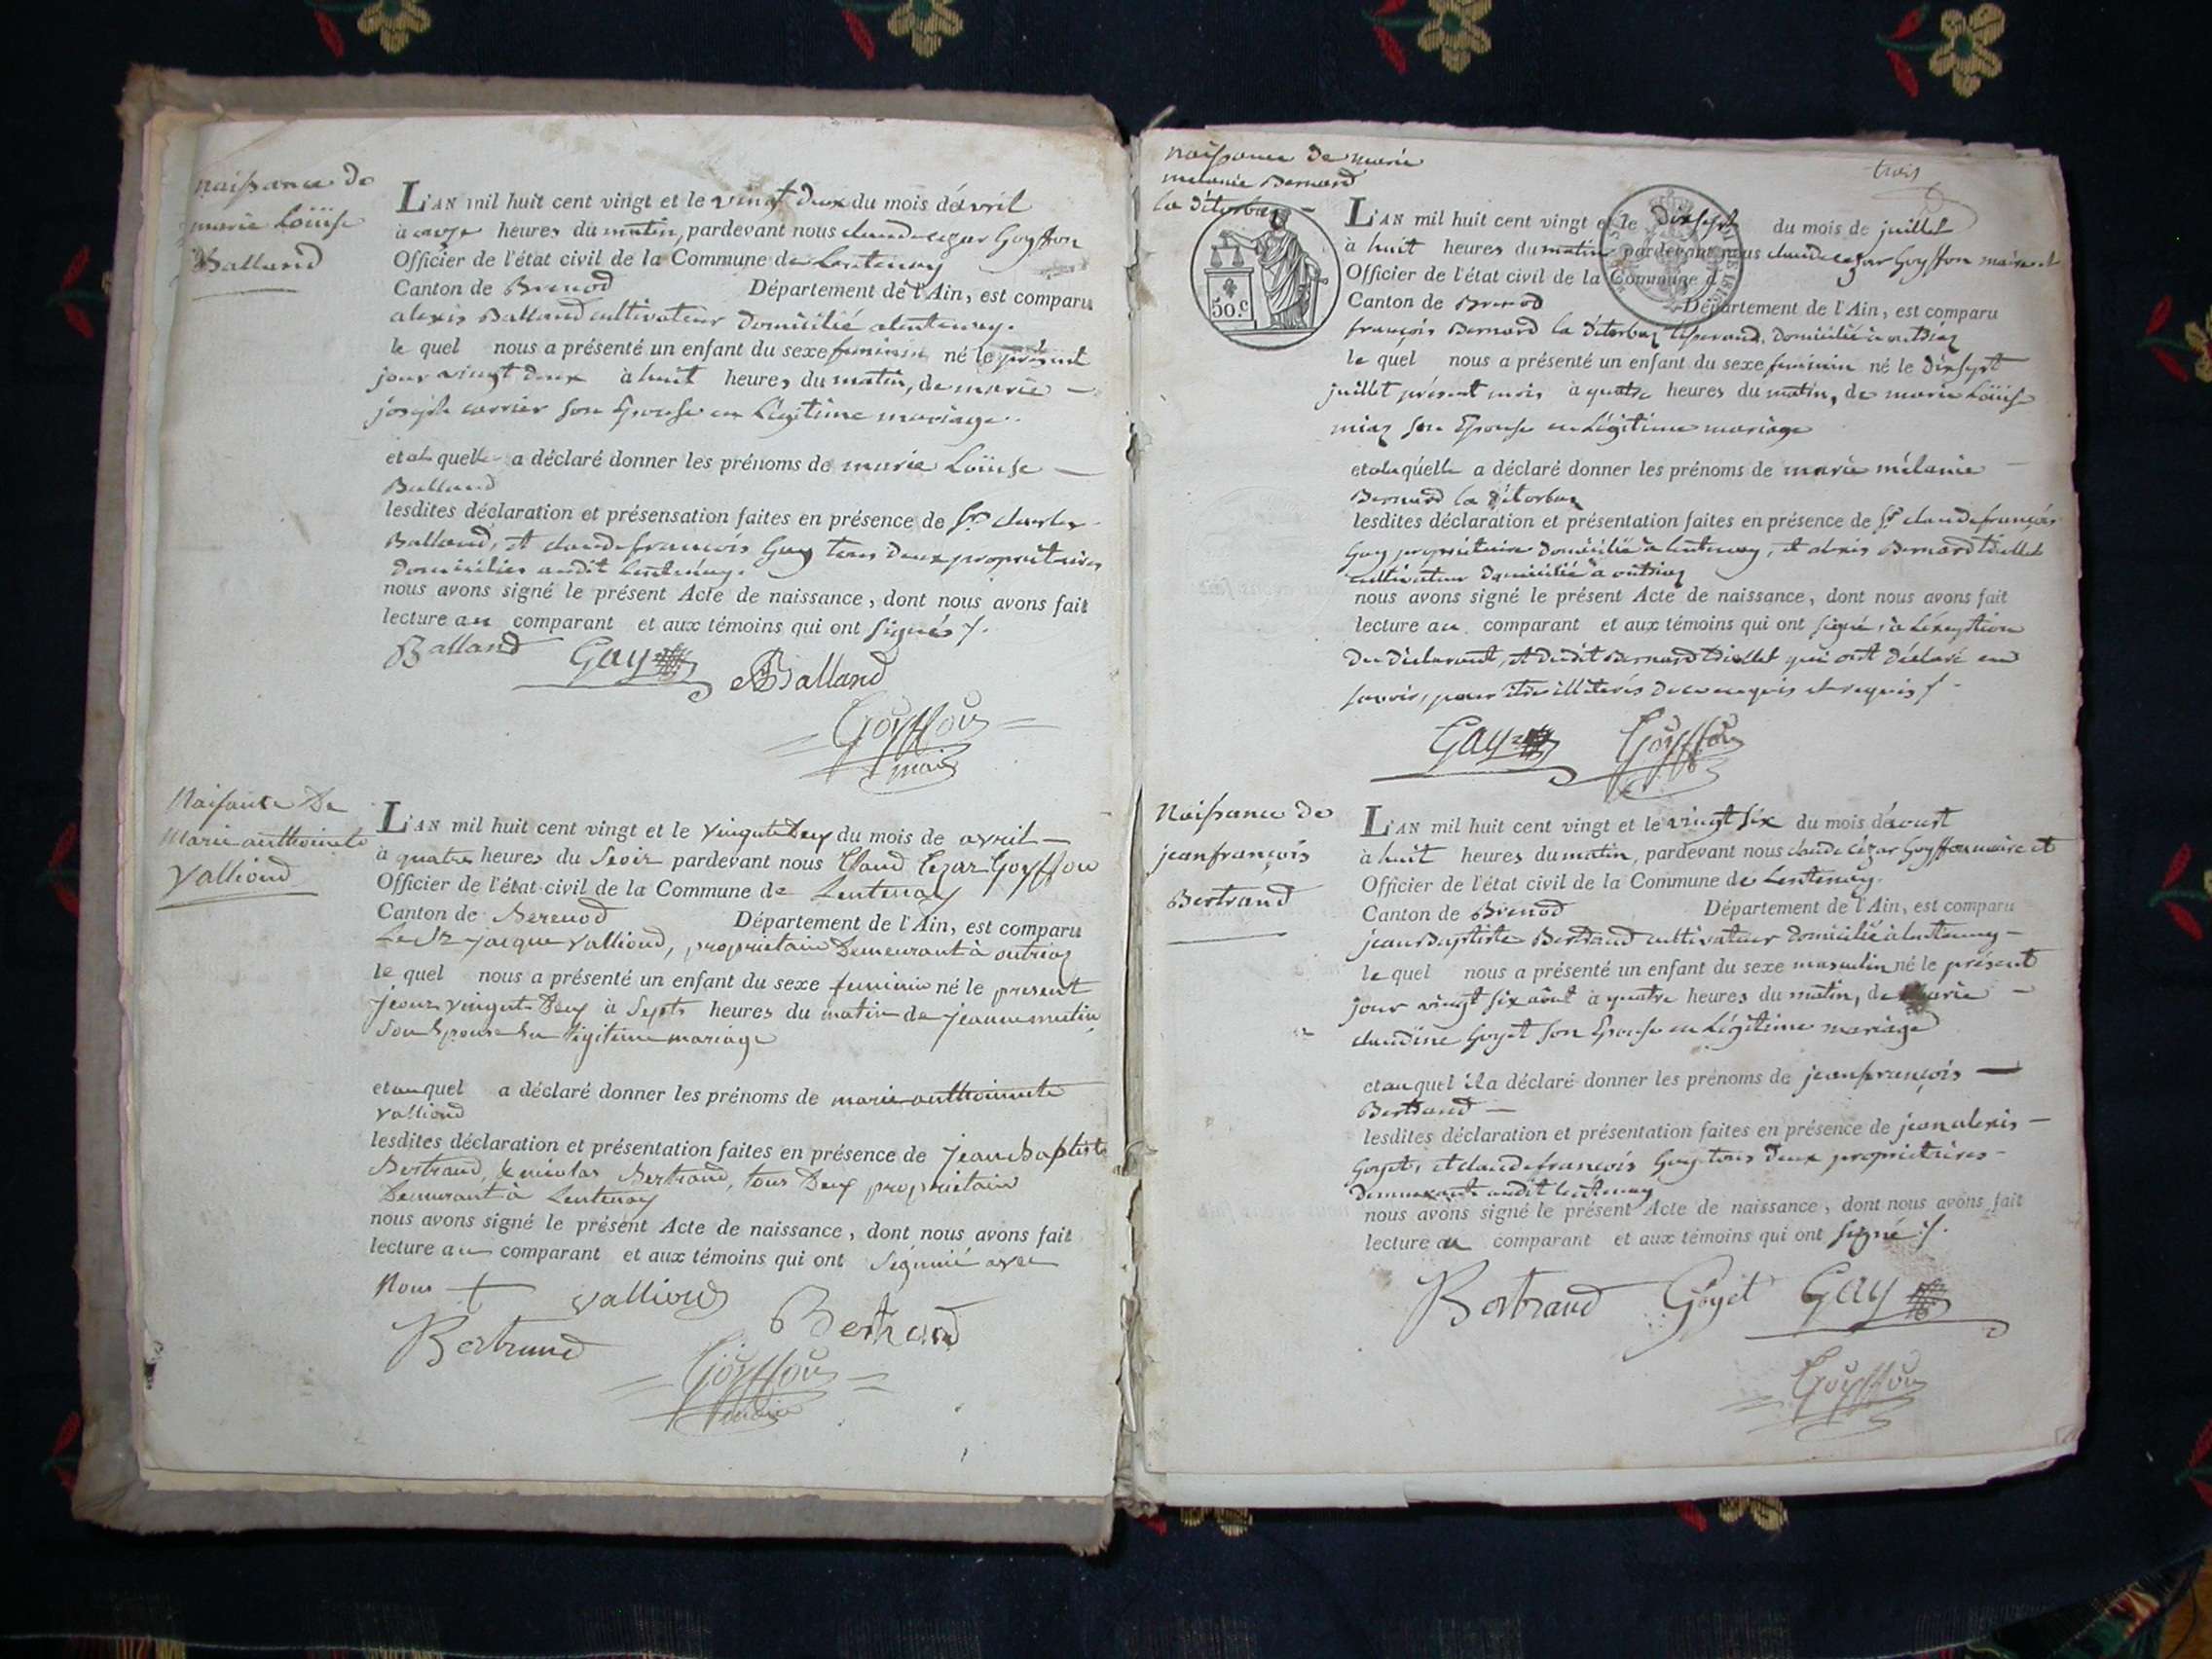 naissance de
marie Loüise
Balland
L'AN mil huit cent vingt et le vingt deux du mois d'avril
à onze heures du matin, pardevant nous claude cezar Goyffon
Officier de l'état civil de la Commune de Lentenay
Canton de Brenod Département de l'Ain, est comparu
alexis Balland cultivateur domicilié a lentenay.
le quel nous a présenté un enfant du sexe feminin né le présent
jour vingt deux à huit heures du matin, de marie —
josephe carrier son Epouse en Légitime mariage.
et a quelle a déclaré donner les prénoms de marie Loüise —
Balland
lesdites déclaration et présensation faites en présence de Sr. charles
Balland, et claude françois Gay tous deux propriétaires
domiciliés audit Lentenay.
nous avons signé le présent Acte de naissance, dont nous avons fait
lecture au comparant et aux témoins qui ont signés /.
Balland Gay Balland
Goyffon
maire
Naisance De
Marie anthoinete
Valliond
L'AN mil huit cent vingt et le vingt Deux du mois de avril —
à quatre heures du Seoir pardevant nous Claud Cezar Goyffon
Officier de l'état civil de la Commune de Lentenay
Canton de Berenod Département de l'Ain, est comparu
Le Sr jacque valliond, proprietaire Demeurant à outriaz
le quel nous a présenté un enfant du sexe feminin né le present
jeour vingt Deux à Septs heures du matin de jeanne
Son Epouse En légitime mariage
et auquel a déclaré donner les prénoms de marie anthoinete
valliond
lesdites déclaration et présentation faites en présence de jean baptiste
Bertrand, & nicolas Bertrand, tous Deux proprietaire
Demeurant à Lentenay
nous avons signé le présent Acte de naissance, dont nous avons fait
lecture au comparant et aux témoins qui ont Signié avec
Nous valliond Bertrand
Bertrand
Goyffon
maire
trois
naissance de marie
melanie Bernard
la déterbaz
50.c
L'AN mil huit cent vingt et le dixsept du mois de juillet
à huit heures du matin pardevant nous claude cezar Goyffon maire et
Officier de l'état civil de la Commune d
Canton de Brenod Département de l'Ain, est comparu
françois Bernard la déterbaz domicilié à outriaz
le quel nous a présenté un enfant du sexe feminin né le dixsept
juillet présent mois à quatre heures du matin, de marie Loüise
miaz son Epouse en Légitime mariage
et a laquelle a déclaré donner les prénoms de marie mélanie —
Bernard la déterbaz
lesdites déclaration et présentation faites en présence de Sr. claude françois
Gay propriétaire domicilié à lentenay, et alexis Bernard
cultivateur domicilié à outriaz
nous avons signé le présent Acte de naissance, dont nous avons fait
lecture au comparant et aux témoins qui ont signé, à L'exeption
du déclarant, et dudit Bernard qui ont déclaré ne
savoir, pour être illiterés de ce enquis et requis /.
Gay Goyffon
Naissance de
jean françois
Bertrand
L'AN mil huit cent vingt et le vingt six du mois d'aoust
à huit heures du matin, pardevant nous claude cézar Goyffon maire et
Officier de l'état civil de la Commune de Lentenay.
Canton de Brenod Département de l'Ain, est comparu
jean Baptiste Bertrand cultivateur domicilié à lentenay —
le quel nous a présenté un enfant du sexe masculin né le présent
jour vingt six août à quatre heures du matin, de Marie —
claudine Goyet son Epouse en Légitime mariage
et auquel il a déclaré donner les prénoms de jean françois —
Bertrand —
lesdites déclaration et présentation faites en présence de jean alexis —
Goyet, et claude françois Gay tous deux propriétaires —
demeurants audit lentenay
nous avons signé le présent Acte de naissance, dont nous avons fait
lecture au comparant et aux témoins qui ont signé /.
Bertrand Goyet Gay
Goyffon